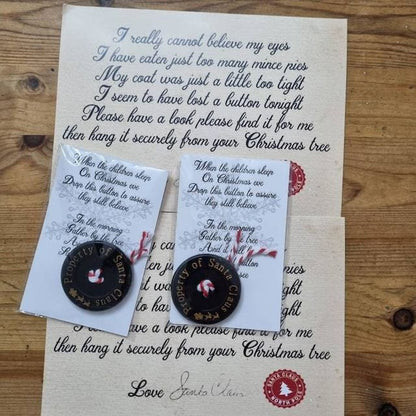 I really cannot believe my eyes
I have eaten just too many mince pies
My coat was just a little too tight
I seem to have lost a button tonight
Please have a look please find it for me
then hang it securely from your Christmas tree
When the children sleep
On Christmas eve
Drop this button to assure
they still believe
In the morning
Gather by the tree
And
Property of Santa Claus
When the children sleep
On Christmas eve
Drop this button to assure
they still believe
In the morning
Gather by the tree
And it will
Property of Santa Claus
my eyes
mince pies
too tight
tonight
for me
then hang it securely from your Christmas tree
Love Santa Claus
SANTA CLAUS
NORTH POLE